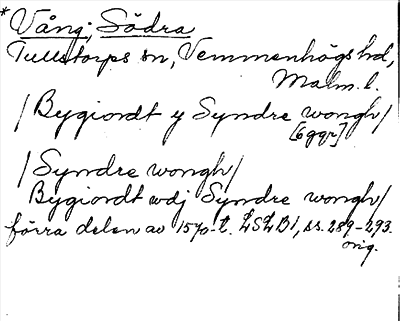 * Vång, Södra
Tullstorps sn, Vemmenhögs hd,
Malm. l.
/Bygiordt y Syndre wongh/
[6 ggr]
/Syndre wongh/
Bygiordt wdj Syndre wongh/
förra delen av 1570-t. LSLB1, ss. 289-293.
orig.